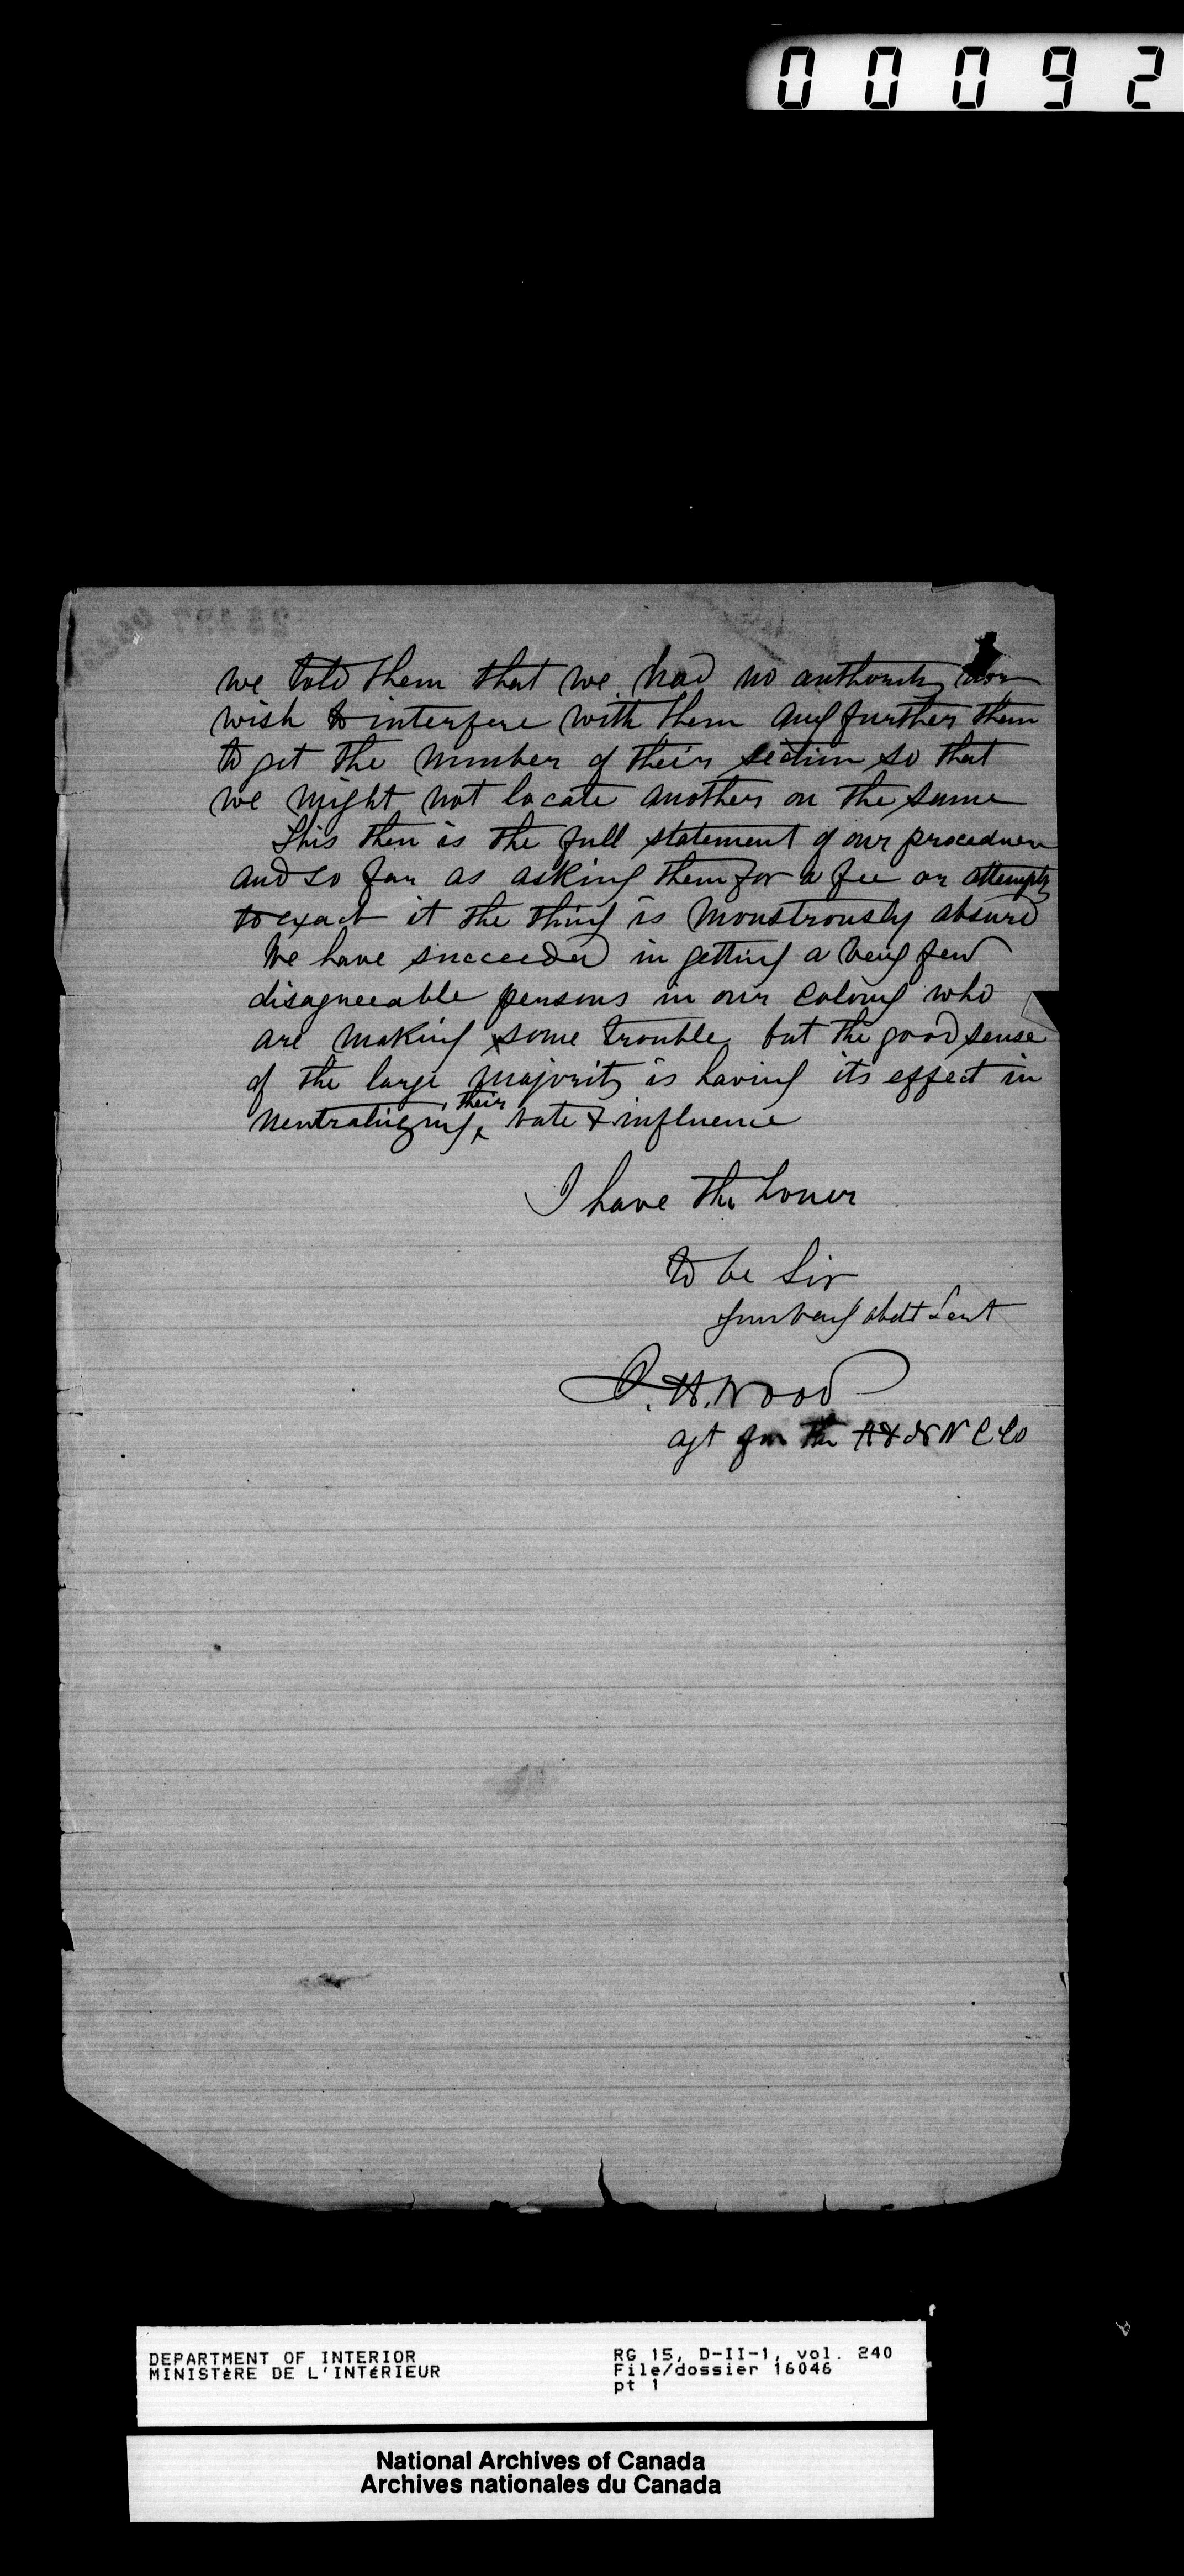 00092
we told them that we had no authority nor
wish to interfere with them any further than
to get the number of their section so that
we might not locate another on the same
This then is the full statement of our procedure
and so far as asking them for a fee or attempts
to exact it the thing is monstrously absurd
We have succeeded in getting a very few
disagreeable persons in our Colony who
are making some trouble but the good sense
of the large majority is having its effect in
neutralizing their vote & influence
I have the honor
to be Sir
your very obdt Servt
J. H. Wood
agt for the
DEPARTMENT OF INTERIOR
MINISTÈRE DE L'INTÉRIEUR
RG 15, D-II-1, vol. 240
File/dossier 16046
pt 1
National Archives of Canada
Archives nationales du Canada